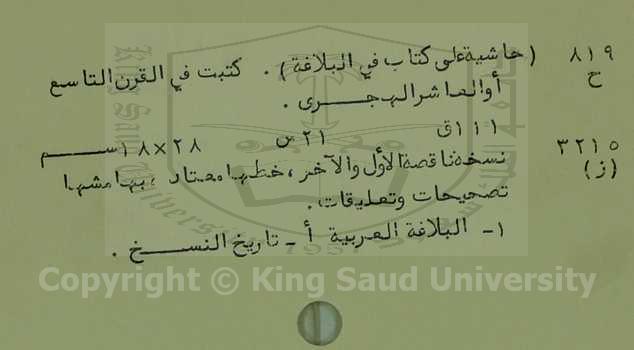 ٨١٩ (حاشية على كتاب في البلاغة) . كتبت في القرن التاسع
ح أو العاشر الهجرى .
١١١ق ٢١س ٢٨×١٨سم
٣٢١٥ نسخة ناقصة الأول والآخر ، خطها معتاد ، بهامشها
(ز) تصحيحات وتعليقات .
١- البلاغة العربية أ - تاريخ النسخ .
Copyright © King Saud University